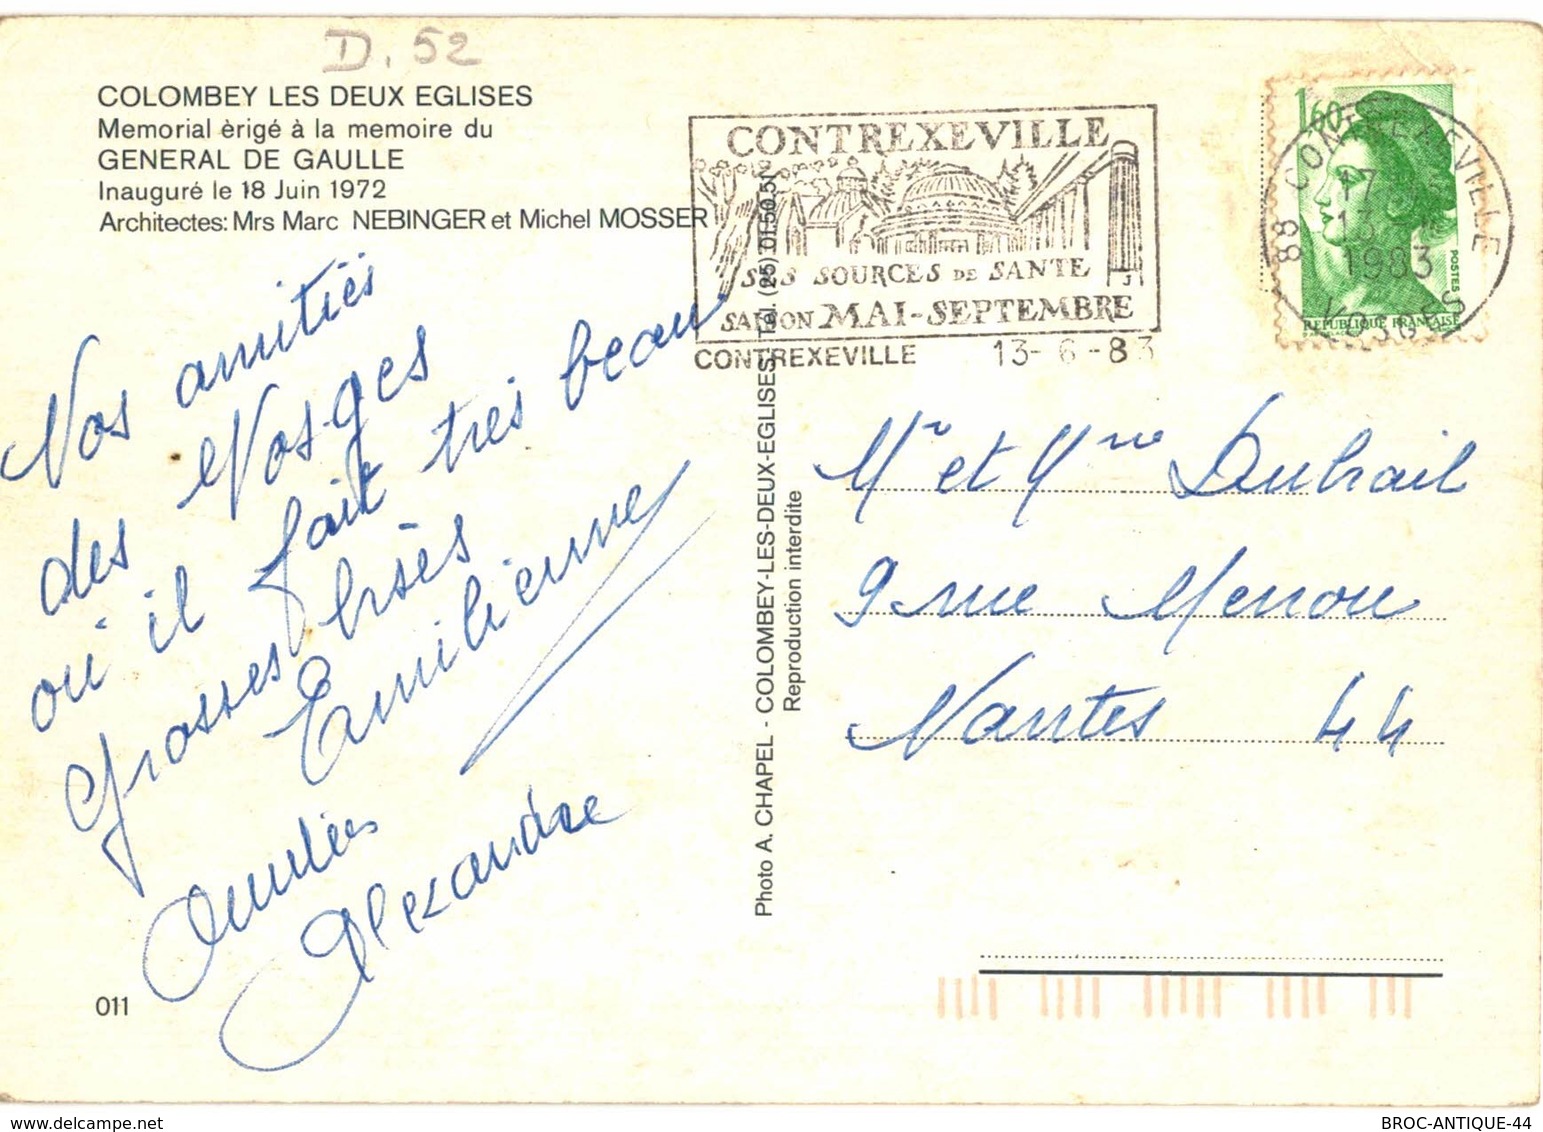 D. 52
COLOMBEY LES DEUX EGLISES
Memorial èrigé à la memoire du
GENERAL DE GAULLE
Inauguré le 18 Juin 1972
Architectes: Mrs Marc NEBINGER et Michel MOSSER
CONTREXEVILLE
SES SOURCES DE SANTE
SAISON MAI-SEPTEMBRE
CONTREXEVILLE 13-6-83
1,60
POSTES
REPUBLIQUE FRANÇAISE
88 CONTREXEVILLE
17
13
1983
VOSGES
Nos amitiés
des Vosges
où il fait très beau
Grosses bises
Emilienne
Alexandre
Photo A. CHAPEL - COLOMBEY-LES-DEUX-EGLISES Tél. (25) 01.50.51
Reproduction interdite
Mr et Mme Dubrail
9 rue Menou
Nantes 44
011
delcampe.net
BROC-ANTIQUE-44